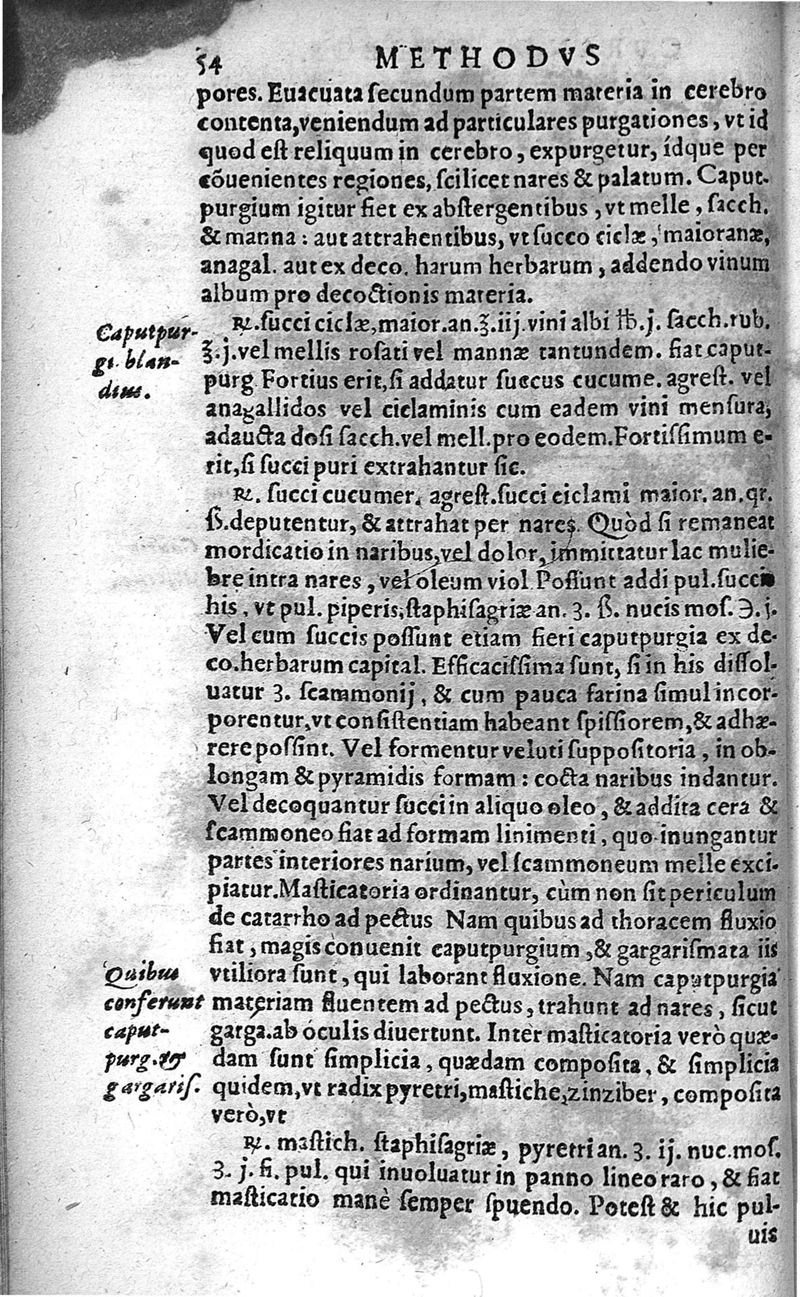 54 METHODVS
pores. Euacuata ſecundum partem materia in cerebro
contenta, veniendum ad particulares purgationes, vt id
quod eſt reliquum in cerebro, expurgetur, ídque per
cõuenientes regiones, ſcilicet nares & palatum. Caput-
purgium igitur fiet ex abſtergentibus, vt melle, ſacch.
& manna: aut attrahentibus, vt ſucco ciclæ, maioranæ,
anagal. aut ex deco. harum herbarum, addendo vinum
album pro decoctionis materia.
Caputpur-
gi. blan-
dius.
℞. ſucci ciclæ, maior. an. ℥. iij. vini albi ℔. j. ſacch. rub.
℥. j. vel mellis roſati vel mannæ tantundem. fiat caput-
purg. Fortius erit, ſi addatur ſuccus cucume. agreſt. vel
anagallidos vel ciclaminis cum eadem vini menſura,
adaucta doſi ſacch. vel mell. pro eodem. Fortiſſimum e-
rit, ſi ſucci puri extrahantur ſic.
℞. ſucci cucumer. agreſt. ſucci ciclami maior. an. qr.
ß. deputentur, & attrahat per nares. Quòd ſi remaneat
mordicatio in naribus, vel dolor, immittatur lac mulie-
bre intra nares, vel oleum viol. Poſſunt addi pul. ſuccis
his, vt pul. piperis, ſtaphiſagriæ an. ʒ. ß. nucis moſ. ℈. j.
Vel cum ſuccis poſſunt etiam fieri caputpurgia ex de-
co. herbarum capital. Efficaciſſima ſunt, ſi in his diſſol-
uatur ʒ. ſcammonij, & cum pauca farina ſimul incor-
porentur, vt conſiſtentiam habeant ſpiſſiorem, & adhæ-
rere poſſint. Vel formentur veluti ſuppoſitoria, in ob-
longam & pyramidis formam: cocta naribus indantur.
Vel decoquantur ſucci in aliquo oleo, & addita cera &
ſcammoneo fiat ad formam linimenti, quo inungantur
partes interiores narium, vel ſcammoneum melle exci-
piatur. Maſticatoria ordinantur, cùm non ſit periculum
de catarrho ad pectus Nam quibus ad thoracem fluxio
fiat, magis conuenit caputpurgium, & gargariſmata iis
Quibus
conferunt
caput-
purg. &
gargariſ.
vtiliora ſunt, qui laborant fluxione. Nam caputpurgia
materiam fluentem ad pectus, trahunt ad nares, ſicut
garga. ab oculis diuertunt. Inter maſticatoria verò quæ-
dam ſunt ſimplicia, quædam compoſita, & ſimplicia
quidem, vt radix pyretri, maſtiche, zinziber, compoſita
verò, vt
℞. maſtich. ſtaphiſagriæ, pyretri an. ʒ. ij. nuc. moſ.
ʒ. j. fi. pul. qui inuoluatur in panno lineo raro, & fiat
maſticatio manè ſemper ſpuendo. Poteſt & hic pul-
uis